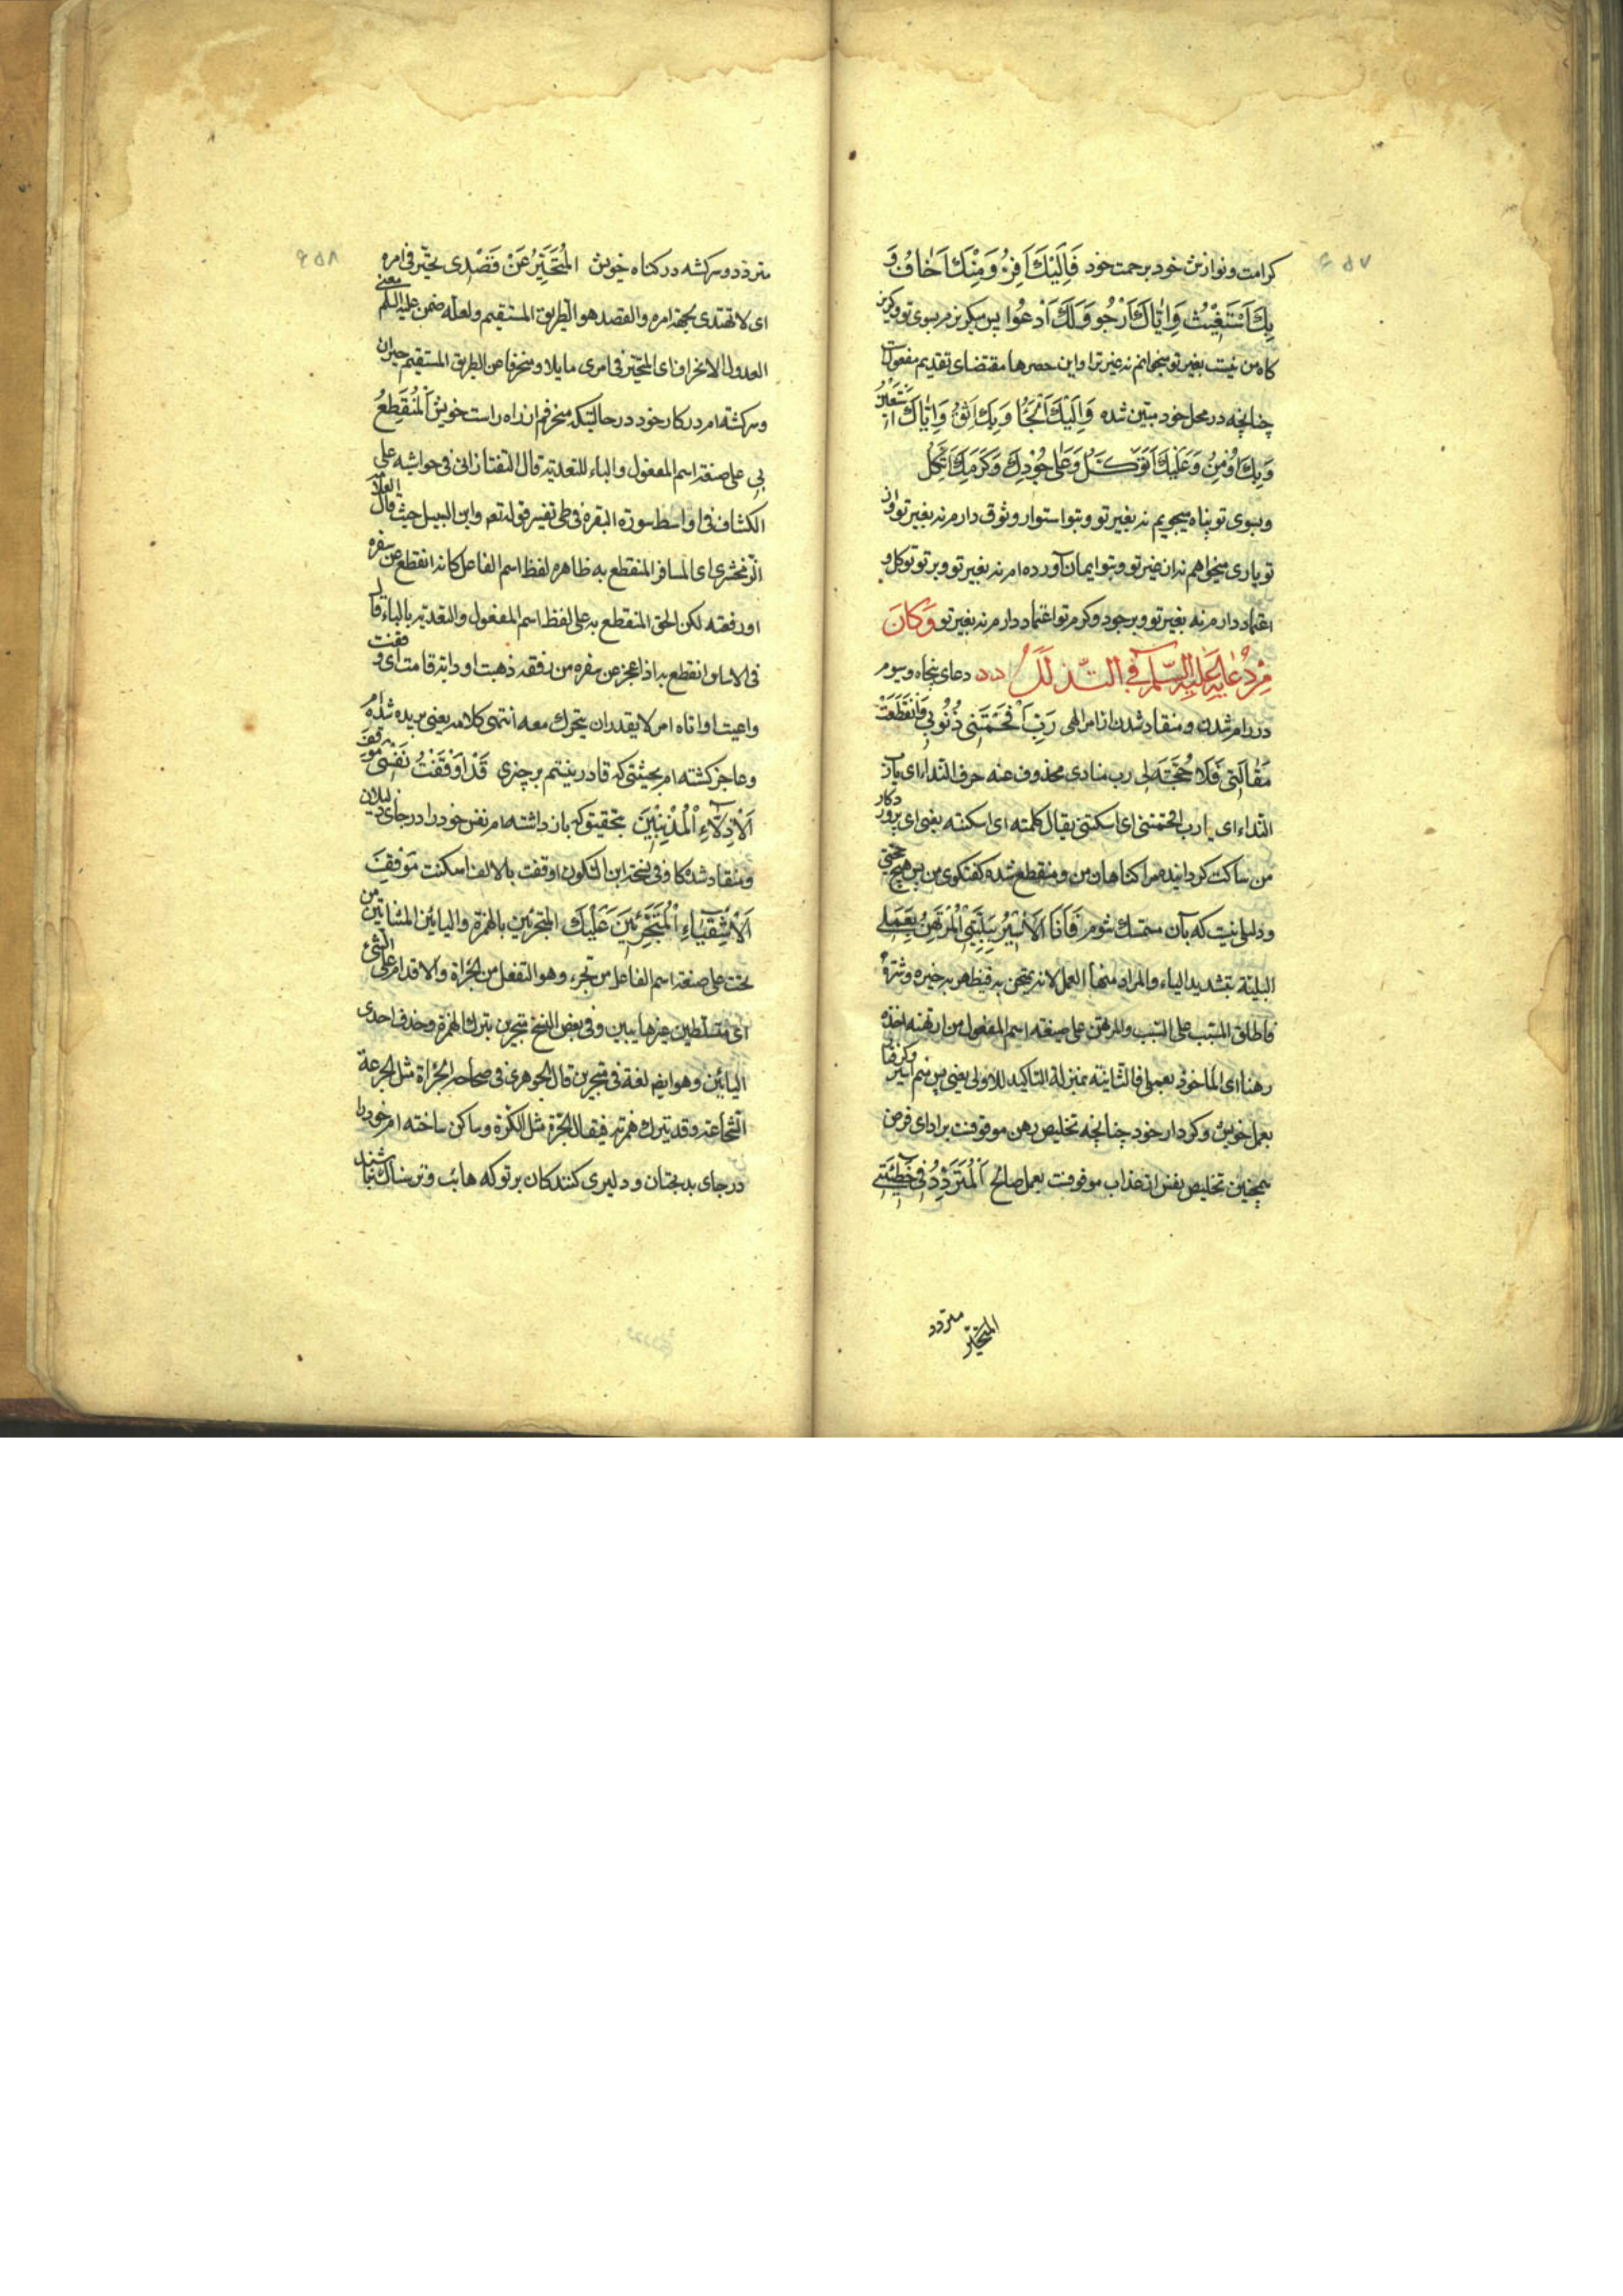 ۶۵۷
کرامت و نوازش خود برحمت خود فَاِلَیْكَ اَفِرُّ وَ مِنْكَ اَخافُ وَ
بِكَ اَسْتَغیْثُ وَ اِیّاكَ اَرْجُو وَ لَكَ اَدْعُوا پس میکریزم بسوی تو و کریز
کاه من نیست بغیر تو میخوانم نه غیر ترا و این حصرها مقتضای تقدیم مفعولست
چنانچه در محل خود مبین شده وَ اِلَیْكَ اَلْجَأُ وَ بِكَ اَثِقُ وَ اِیّاكَ اَسْتَعینُ
وَ بِكَ اُوْمِنُ وَ عَلَیْكَ اَتَوَكَّلُ وَ عَلی جُوْدِكَ وَ كَرَمِكَ اَتَّكِلُ
و بسوی تو پناه میجویم نه بغیر تو و بتو استوار و ثوق دارم نه بغیر تو و از
تو یاری میخواهم نه از غیر تو و بتو ایمان آورده ام نه بغیر تو و بر تو توکل و
اعتماد دارم نه بغیر تو و بر جود و کرم تو اعتماد دارم نه بغیر تو وَ كانَ
مِنْ دُعائِهِ عَلَیْهِ السَّلام فِی التَّذَلُّلِ دعای پنجاه و سیوم
در رام شدن و منقاد شدن از امر الهی رَبِّ اَفْحَمَتْنی ذُنُوبی وَ انْقَطَعَتْ
مَقالَتی فَلا حُجَّةَ لی رب منادی محذوف عنه حرف النداء ای یا رب
النداء ای یا رب افحمتنی ای اسکتتنی یقال کلمته ای اسکته یعنی ای پروردکار
من ساکت کردانیده مرا کناهان من و منقطع شده کفتکوی من پس هیچ حجتی
و دلیلی نیست که بآن متمسك شوم فَاَنَا الاَسْیرُ بِبَلِیَّتی الْمُرْتَهَنُ بِعَمَلی
البلیة بتشدید الیاء والمراد منها العمل لانه یمتحن به فیظهر به خیره و شره
فاطلق المسبب علی السبب والمرتهن علی صیغة اسم المفعول من ارتهنه اخذه
رهنا ای الماخوذ بعملی فالثانیة بمنزلة التاکید للاولی یعنی پس منم اسیر و کرفتار
بعمل خویش و کردار خود چنانچه تخلیص رهن موقوفست بر ادای قرض
همچنین تخلیص نفس از عذاب موقوفست بعمل صالح اَلْمُتَرَدِّدُ فی خَطیئَتی
متردد
المتحیر
۶۵۸
متردد و سرکشته در کناه خویش اَلْمُتَحَیِّرُ عَنْ قَصْدی تحیر فی امره
ای لا تهتدی لجهة امره والقصد هو الطریق المستقیم و لعله ضمن علیه السلم معنی
العدول الانحراف ای المتحیر فی امری مایلا و منحرفا عن الطریق المستقیم حیران
و سرکشته ام در کار خود در حالتیکه منحرفم از راه راست خویش اَلْمُنْقَطَعُ
بی علی صیغة اسم المفعول والباء للتعدیة قال التفتازانی فی حواشیه علی
الکشاف فی اواسط سورة البقره فی طی تفسیر قوله تعم و ابن السبیل حیث قال العلامة
الزمخشری ای المسافر المنقطع به ظاهره لفظ اسم الفاعل کانه انقطع عن سفره
او رفقته لکن الحق المنقطع به علی لفظ اسم المفعول والتعدیة بالباء قال
فی الاساس انقطع به اذا عجز عن سفره من نفقة ذهبت او دابة قامت ای وقفت
و اعیت او اتاه امر لا یقدر ان یتحرك معه انتهی کلامه یعنی بریده شده ام
و عاجز کشته ام بحیثیتی که قادر نیستم بر چیزی قَدْ اَوْقَفْتُ نَفْسی مَوْقِفَ
اَلاَذِلاّءِ الْمُذْنِبینَ بتحقیق که باز داشته ام نفس خود را در جای ذلیلان
و منقاد شدکا و فی نسخة ابن السکون اوقفت بالالف اسکنت مَوْقِفَ
اَلاَشْقِیاءِ الْمُتَجَرِّئینَ عَلَیْكَ المتجرئین بالهمزة والیائین المثناتین من
تحت علی صیغة اسم الفاعل من تجرء و هو التفعل من الجراة والاقدام علی الشیء
ای متسلطین غیر هایبین و فی بعض النسخ متجرین بترك الهمزة و حذف احدی
الیائین و هو ایض لغة فی متجرین قال الجوهری فی صحاحه الجراة مثل الجرعة
الشجاعة و قد یترك همزته فیقال الجرة مثل الکرة و ساکن ساخته ام خود را
در جای بدبختان و دلیری کنندکان بر تو که هائب و ترسناك نباشند